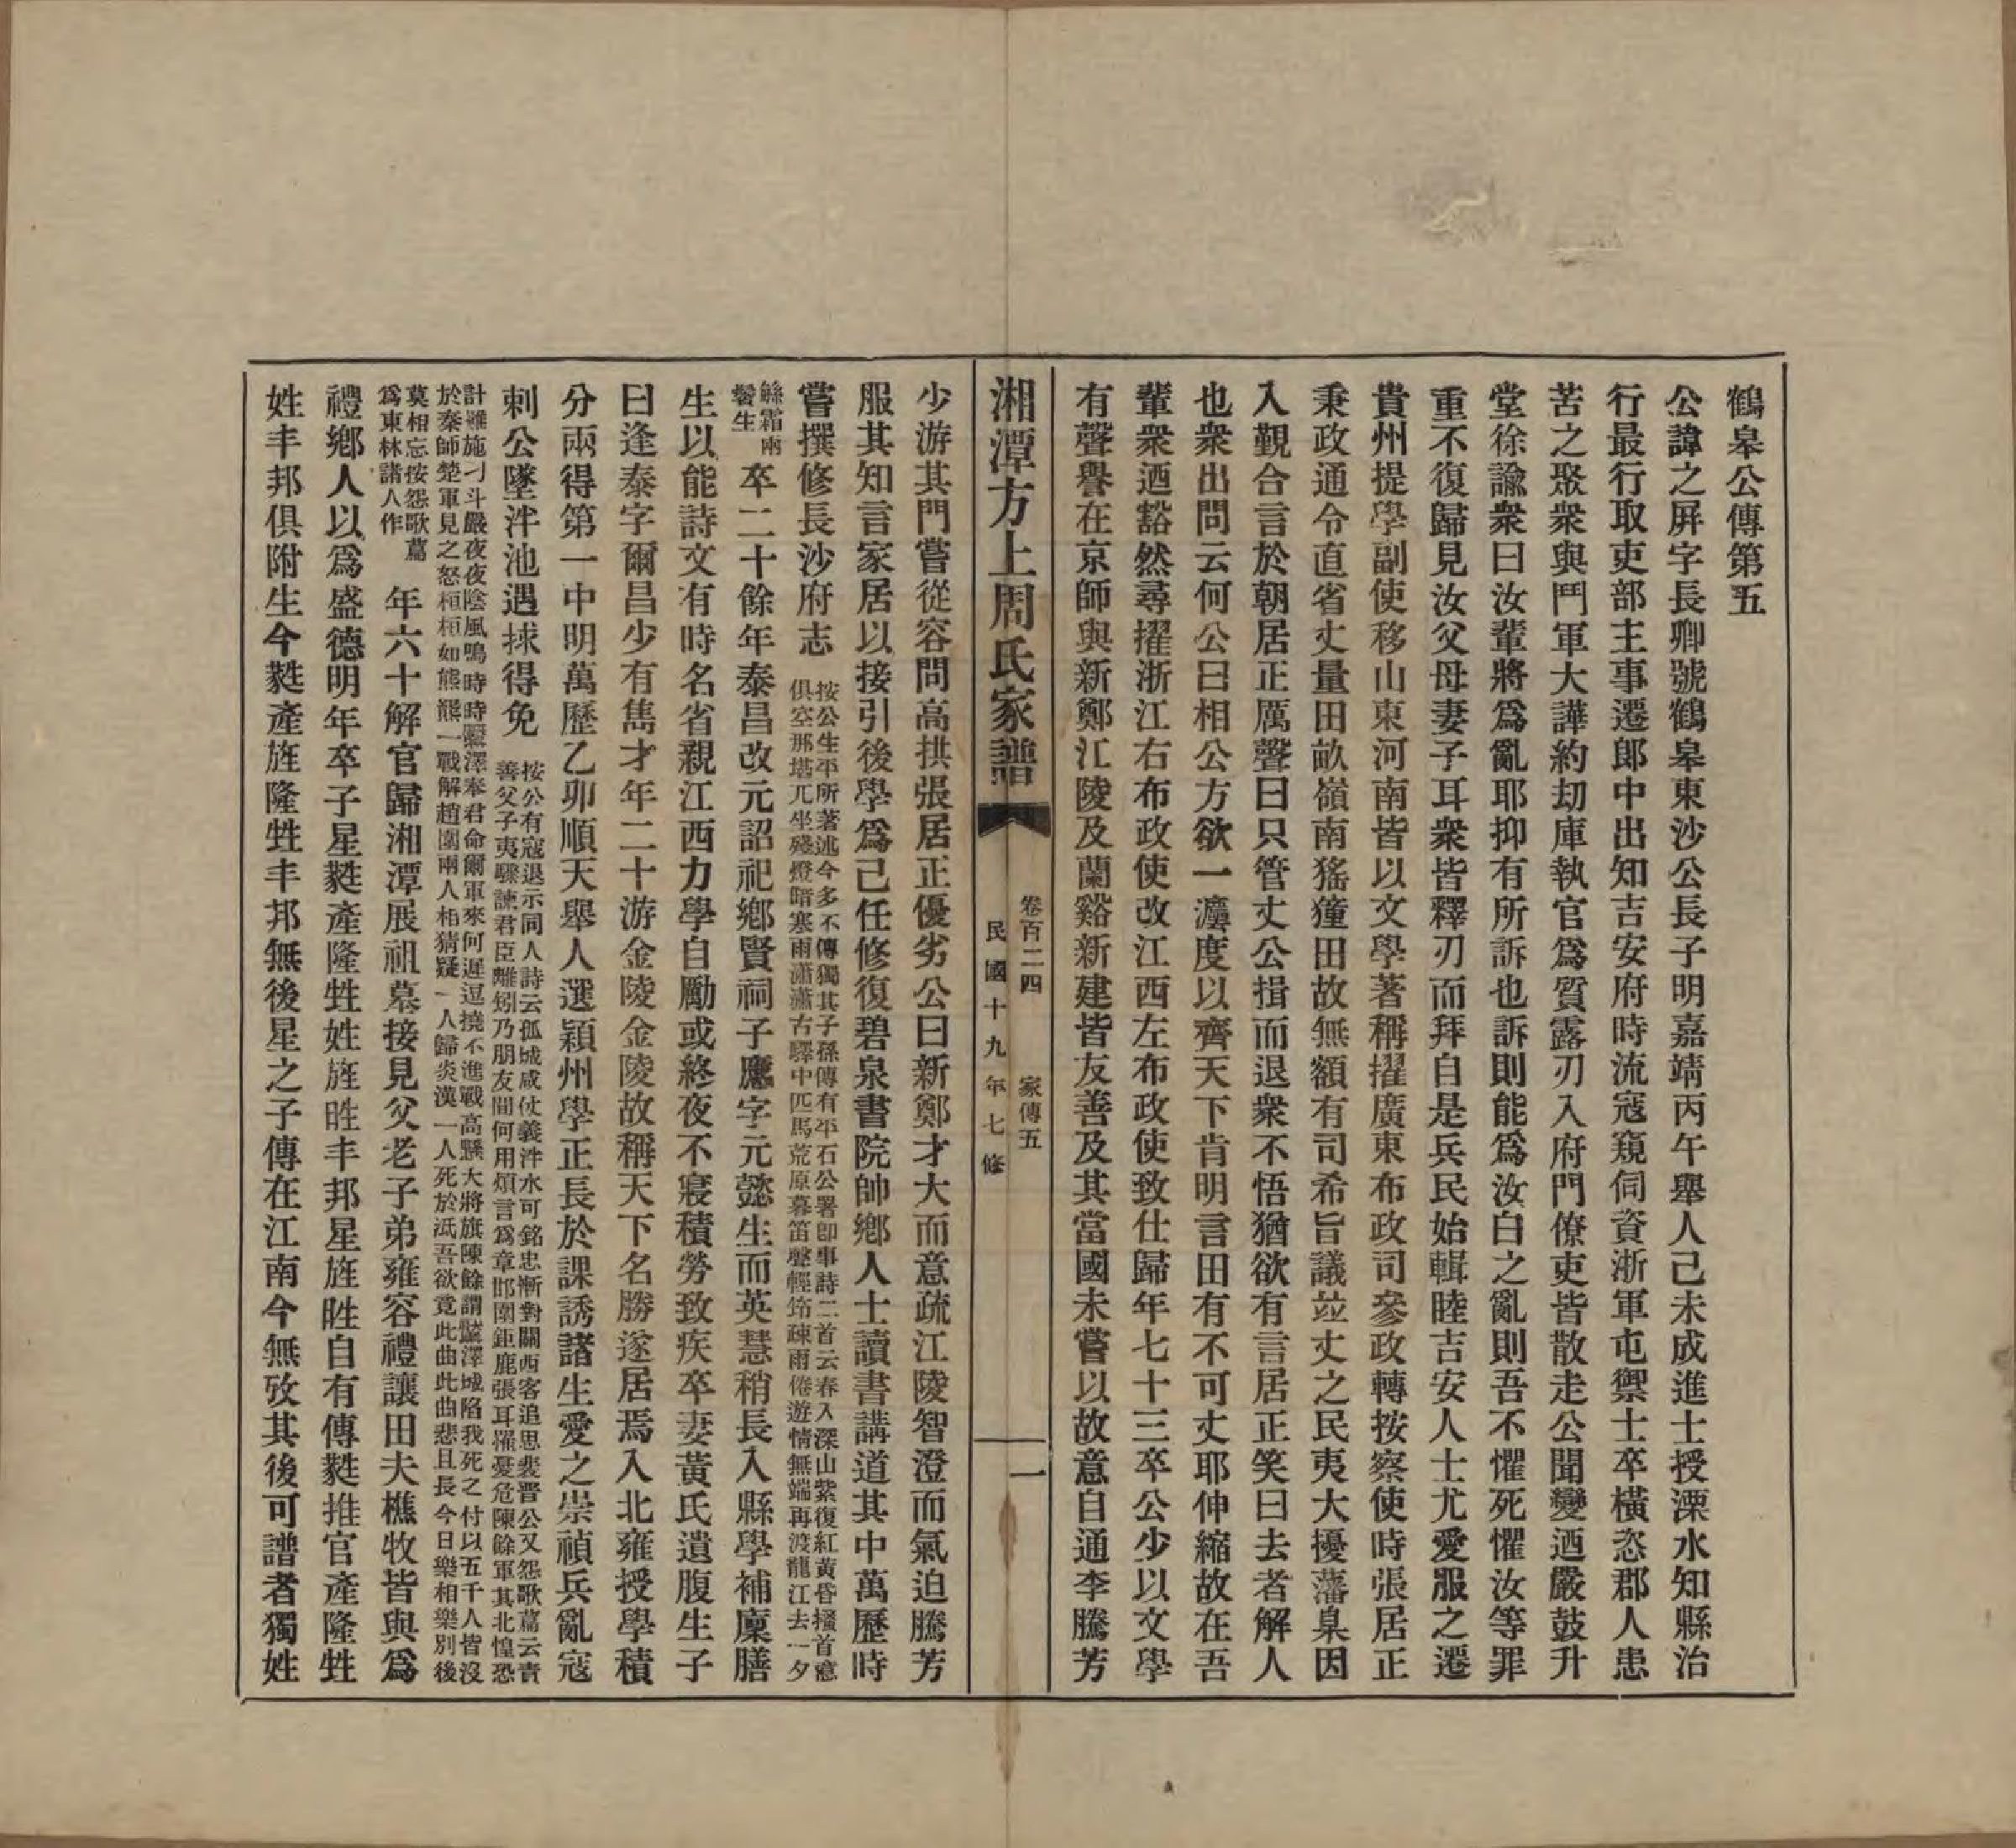 鶴皋公傳第五
公諱之屏字長卿號鶴皋東沙公長子明嘉靖丙午舉人己未成進士授溧水知縣治
行最行取吏部主事遷郎中出知吉安府時流寇窺伺資浙軍屯禦士卒橫恣郡人患
苦之聚衆與鬥軍大譁約刧庫執官爲質露刃入府門僚吏皆散走公聞變迺嚴鼓升
堂徐諭衆曰汝輩將爲亂耶抑有所訴也訴則能爲汝白之亂則吾不懼死懼汝等罪
重不復歸見汝父母妻子耳衆皆釋刃而拜自是兵民始輯睦吉安人士尤愛服之遷
貴州提學副使移山東河南皆以文學著稱擢廣東布政司參政轉按察使時張居正
秉政通令直省丈量田畝嶺南猺獞田故無額有司希旨議竝丈之民夷大擾藩臬因
入覲合言於朝居正厲聲曰只管丈公揖而退衆不悟猶欲有言居正笑曰去者解人
也衆出問云何公曰相公方欲一灋度以齊天下肯明言田有不可丈耶伸縮故在吾
輩衆迺豁然尋擢浙江右布政使改江西左布政使致仕歸年七十三卒公少以文學
有聲譽在京師與新鄭江陵及蘭谿新建皆友善及其當國未嘗以故意自通李騰芳
湘潭方上周氏家譜
卷百二四 家傳五
民國十九年七修
一
少游其門嘗從容問高拱張居正優劣公曰新鄭才大而意疏江陵智澄而氣迫騰芳
服其知言家居以接引後學爲己任修復碧泉書院帥鄉人士讀書講道其中萬歷時
嘗撰修長沙府志
按公生平所著述今多不傳獨其子孫傳有平石公署卽事詩二首云春入深山紫復紅黃昏搔首意
俱空邢塔兀坐殘燈暗寒雨瀟瀟古驛中匹馬荒原暮笛聲輕筇疎雨倦遊情無端再渡龍江去一夕
緜霜兩
鬢生
卒二十餘年泰昌改元詔祀鄉賢祠子應字元懿生而英慧稍長入縣學補廩膳
生以能詩文有時名省親江西力學自勵或終夜不寢積勞致疾卒妻黃氏遺腹生子
曰逢泰字爾昌少有雋才年二十游金陵金陵故稱天下名勝遂居焉入北雍授學積
分兩得第一中明萬歷乙卯順天舉人選潁州學正長於課誘諸生愛之崇禎兵亂寇
刺公墜泮池遇捄得免
按公有寇退示同人詩云孤城咸仗義泮水可銘忠漸對關西客追思裴晋公又怨歌篇云責
善父子夷驟諫君臣離矧乃朋友間何用煩言爲章邯圍鉅鹿張耳罹憂危陳餘軍其北惶恐
計難施刁斗嚴夜夜陰風鳴時時黶澤奉君命爾軍來何遲逗撓不進戰高懸大將旗陳餘謂黶澤城陷我死之付以五千人皆沒
於秦師楚軍見之怒桓桓如熊羆一戰解趙圍兩人相猜疑一人歸炎漢一人死於泜吾欲竟此曲此曲悲且長今日樂相樂別後
莫相忘按怨歌篇
爲東林諸人作
年六十解官歸湘潭展祖墓接見父老子弟雍容禮讓田夫樵牧皆與爲
禮鄉人以爲盛德明年卒子星蕤產隆甡姓旌甠丰邦星旌甠自有傳蕤推官產隆甡
姓丰邦俱附生今蕤產旌隆甡丰邦無後星之子傳在江南今無攷其後可譜者獨姓